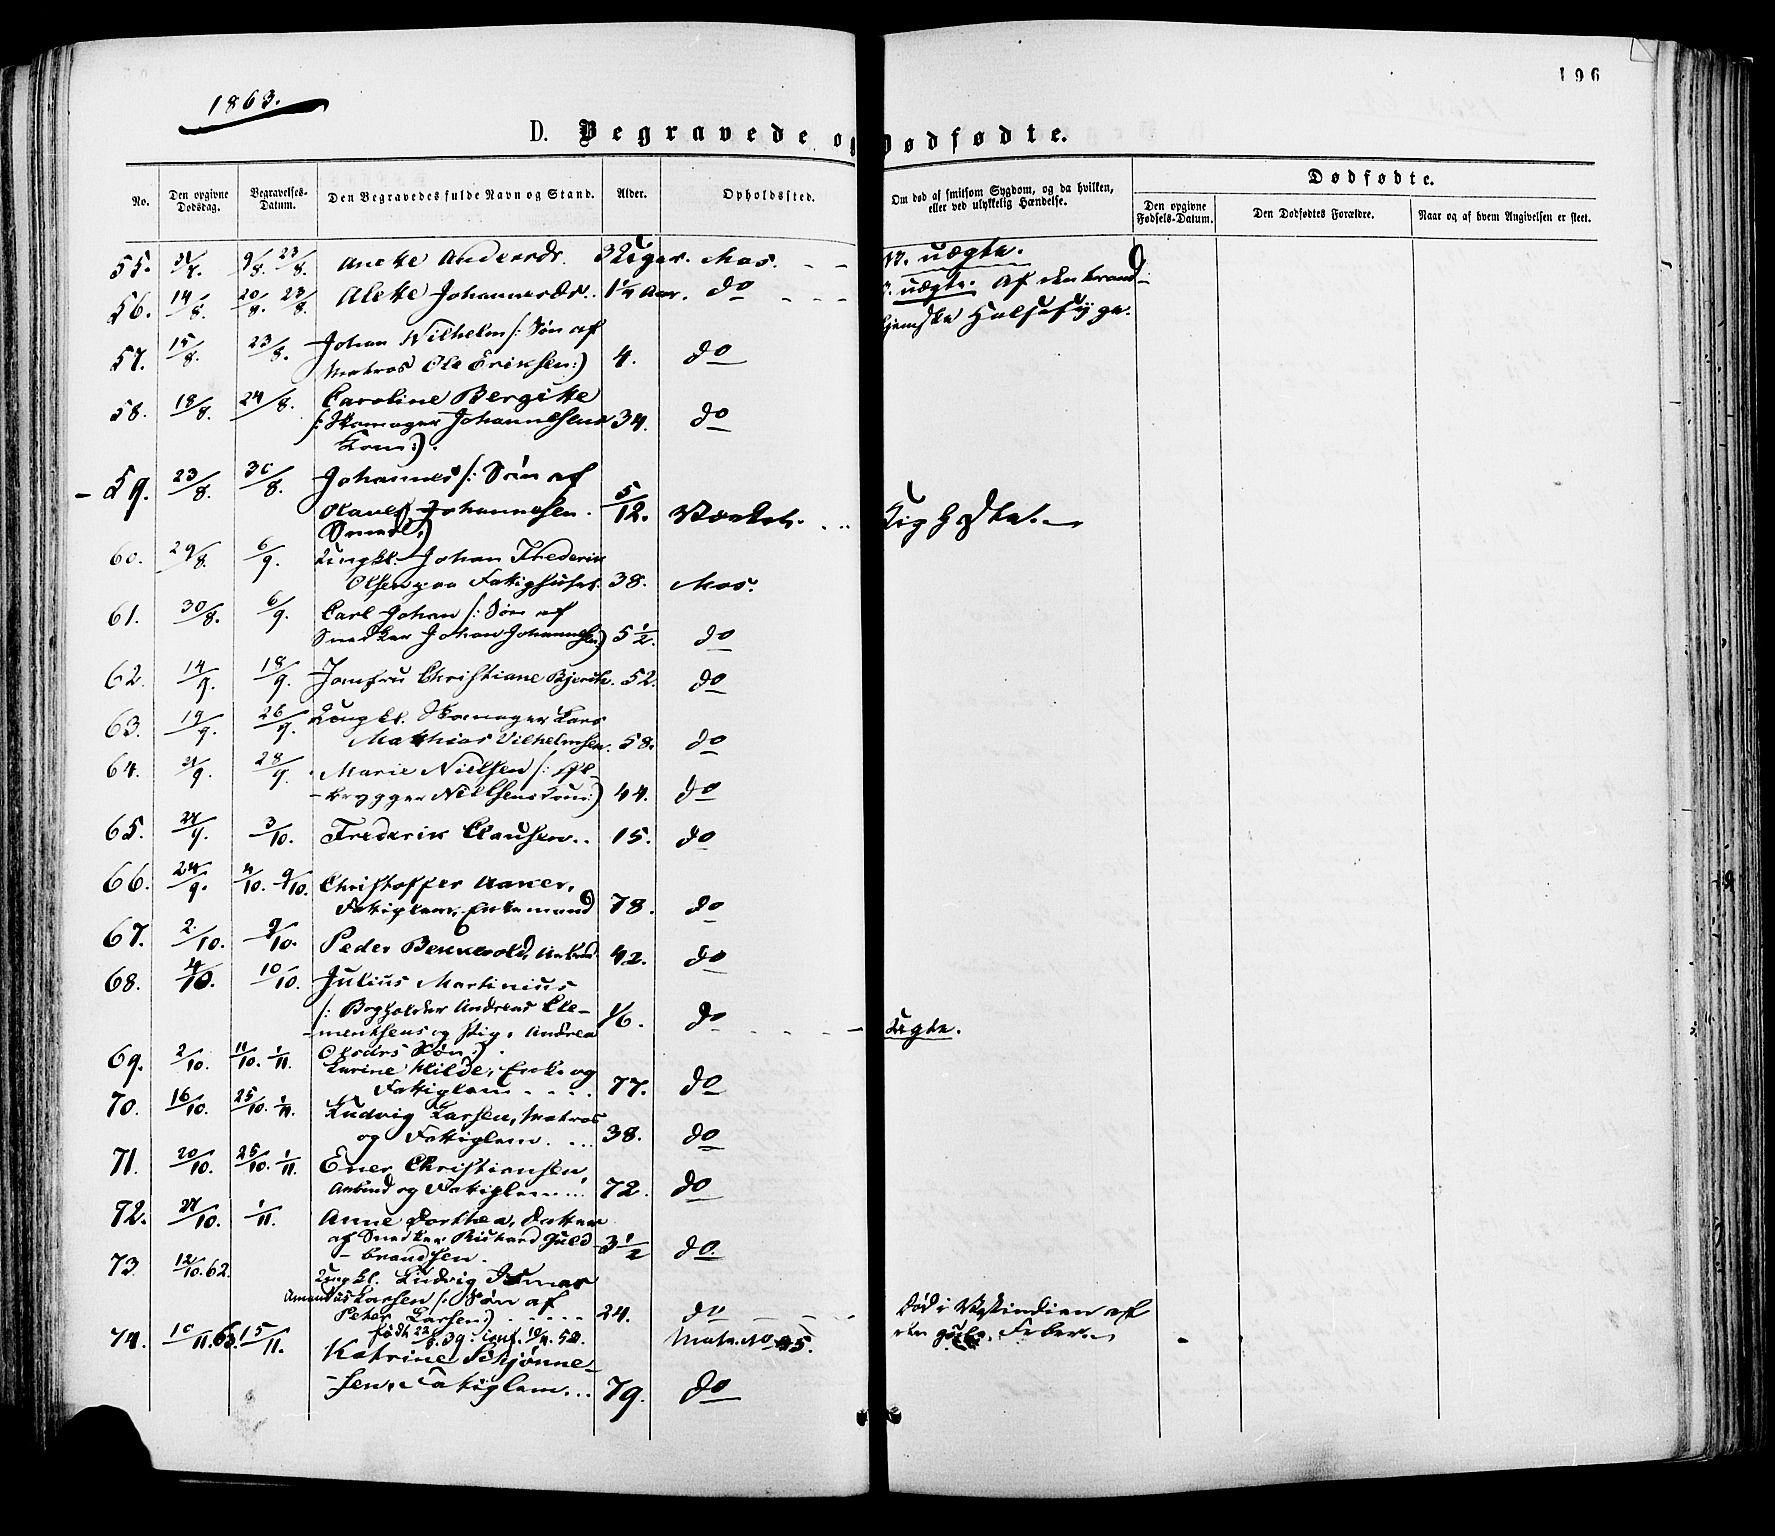 196
1863.
D. Begravede og Dødfødte.
No. Den opgivne Dødsdag. Begravelses-Datum. Den Begravedes fulde Navn og Stand. Alder. Opholdssted. Om død af smitsom Sygdom, og da hvilken, eller ved ulykkelig Hændelse. Dødfødte.
Den opgivne Fødsels-Datum. Den Dødfødtes Forældre. Naar og af hvem Angivelsen er skeet.
55. 9/8. 23/8. Anette Andersdr. 3 Uger. Mos. uægte.
56. 14/8. 20/8. 23/8. Alette Johannesdr. 1 1/4 Aar. do uægte. Af den brand-
57. 15/8. 23/8. Johan Vilhelm /: Søn af
Matros Ole Eriksen :) 4. do
58. 18/8. 24/8. Caroline Bergitte
/: Skomager Johannesens 34. do
Kone :).
59. 23/8. 30/8. Johannes /: Søn af
Johannesen. 5/12. Værket.
Smed :)
60. 29/8. 6/9. Ungkl. Johan Frederik
Olsen paa Fattighuset. 38. Mos.
61. 30/8. 6/9. Carl Johan /: Søn af
Snedker Johan Johannesen :) 5 1/2. do
62. 14/9. 18/9. Jomfru Christiane 52. do
63. 19/9. 26/9. Ungkl. Skomager Lars
Mathias Vilhelmsen. 58. do
64. 21/9. 28/9. Marie Nielsen /: Øl-
brygger Nielsens Kone :) 44. do
65. 3/10. Frederik Clausen. 15. do
66. 24/9. 4/10. 9/10. Christoffer
Fattiglem, Enkemand 78. do
67. 2/10. 9/10. Peder 42. do
68. 4/10. 10/10. Julius Martinius
/: Bogholder Andreas Cle-
mentsens og Pig. Andrea 1/6. do Uægte.
Olsdrs Søn :).
69. 2/10. 11/10. 1/11. Karine Hilde, Enke og
Fattiglem 77. do
70. 16/10. 25/10. 1/11. Ludvig Larsen, Matros
og Fattiglem. 38. do
71. 20/10. 25/10. 1/11. Ener Christiansen,
Arbmd og Fattiglem 72. do
72. 27/10. 1/11. Anne Dorthea, Datter
af Snedker Richard Guld-
brandsen. 3 1/2 do.
73. 12/10. 62. Ungkl. Ludvig
Amandus Larsen /: Søn af
Peter Larsen :) 24. do Død i Vestindien af
den gule Feber.
født 22/8. 39. conf. 54. Matr. No 95.
74. 10/11. 63. 15/11. Katrine Schjønne-
sen, Fattiglem 79. do